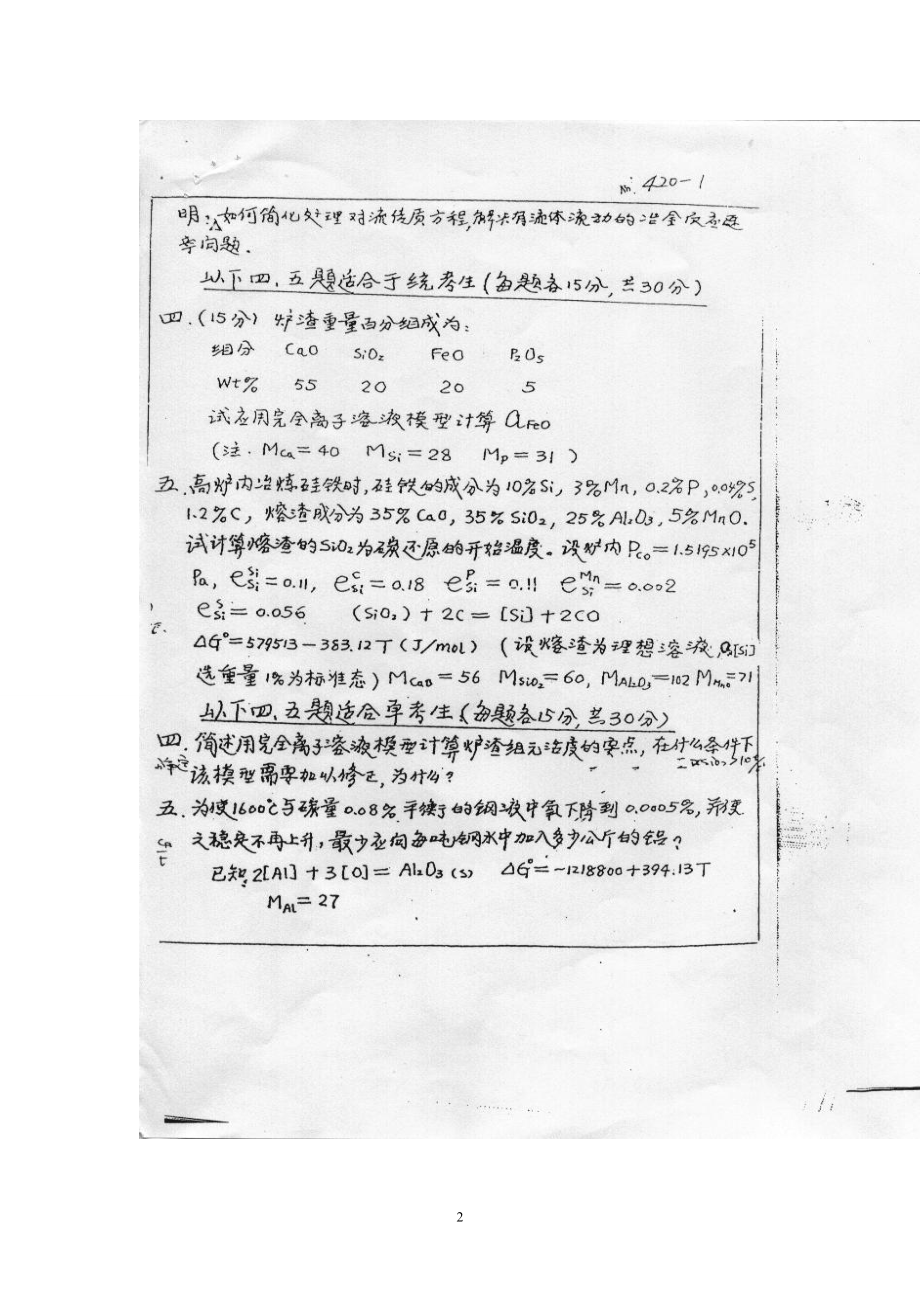 No. 420-1
明:如何简化处理对流传质方程,解决有流体流动的冶金反应速
率问题.
以下四、五题适合于统考生(每题各15分,共30分)
四.(15分) 炉渣重量百分组成为:
组分 CaO SiO₂ FeO P₂O₅
Wt% 55 20 20 5
试应用完全离子溶液模型计算 aFeO
(注. MCa=40 MSi=28 MP=31 )
五.高炉内冶炼硅铁时,硅铁的成分为10%Si, 3%Mn, 0.2%P, 0.04%S,
1.2%C, 熔渣成分为35%CaO, 35%SiO₂, 25%Al₂O₃, 5%MnO.
试计算熔渣的SiO₂为碳还原的开始温度。设炉内Pco=1.5195×10⁵
Pa, e_Si^Si=0.11, e_Si^C=0.18 e_Si^P=0.11 e_Si^Mn=0.002
e_Si^S=0.056 (SiO₂)+2C=[Si]+2CO
ΔG°=579513-383.12T(J/mol) (设熔渣为理想溶液, [Si]
选重量1%为标准态) MCaO=56 MSiO₂=60, MAl₂O₃=102 MMnO=71
以下四、五题适合单考生(每题各15分,共30分)
四.简述用完全离子溶液模型计算炉渣组元活度的要点,在什么条件下
该模型需要加以修正,为什么?
五.为使1600℃与碳量0.08%平衡的钢液中氧下降到0.0005%,并使
之稳定不再上升,最少应向每吨钢水中加入多少公斤的铝?
已知:2[Al]+3[O]=Al₂O₃(s) ΔG°=-1218800+394.13T
MAl=27
2